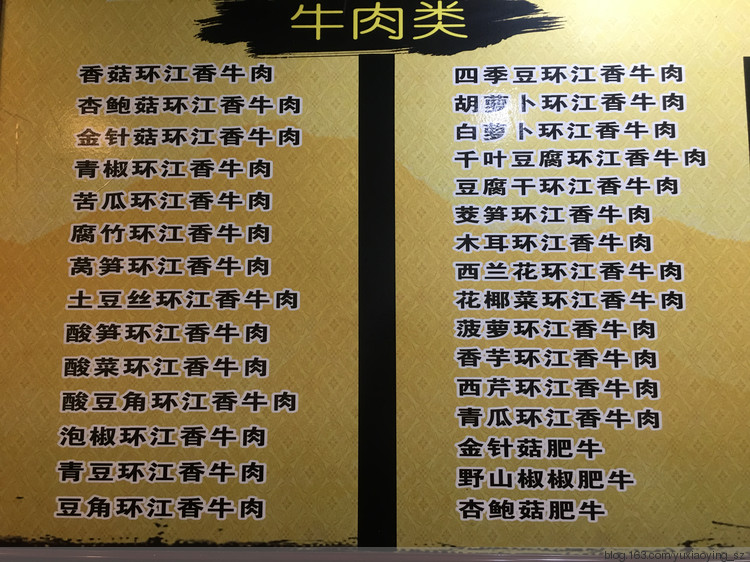 牛肉类
香菇环江香牛肉
杏鲍菇环江香牛肉
金针菇环江香牛肉
青椒环江香牛肉
苦瓜环江香牛肉
腐竹环江香牛肉
莴笋环江香牛肉
土豆丝环江香牛肉
酸笋环江香牛肉
酸菜环江香牛肉
酸豆角环江香牛肉
泡椒环江香牛肉
青豆环江香牛肉
豆角环江香牛肉
四季豆环江香牛肉
胡萝卜环江香牛肉
白萝卜环江香牛肉
千叶豆腐环江香牛肉
豆腐干环江香牛肉
茭笋环江香牛肉
木耳环江香牛肉
西兰花环江香牛肉
花椰菜环江香牛肉
菠萝环江香牛肉
香芋环江香牛肉
西芹环江香牛肉
青瓜环江香牛肉
金针菇肥牛
野山椒椒肥牛
杏鲍菇肥牛
blog.163.com/yuxiaoying_sz